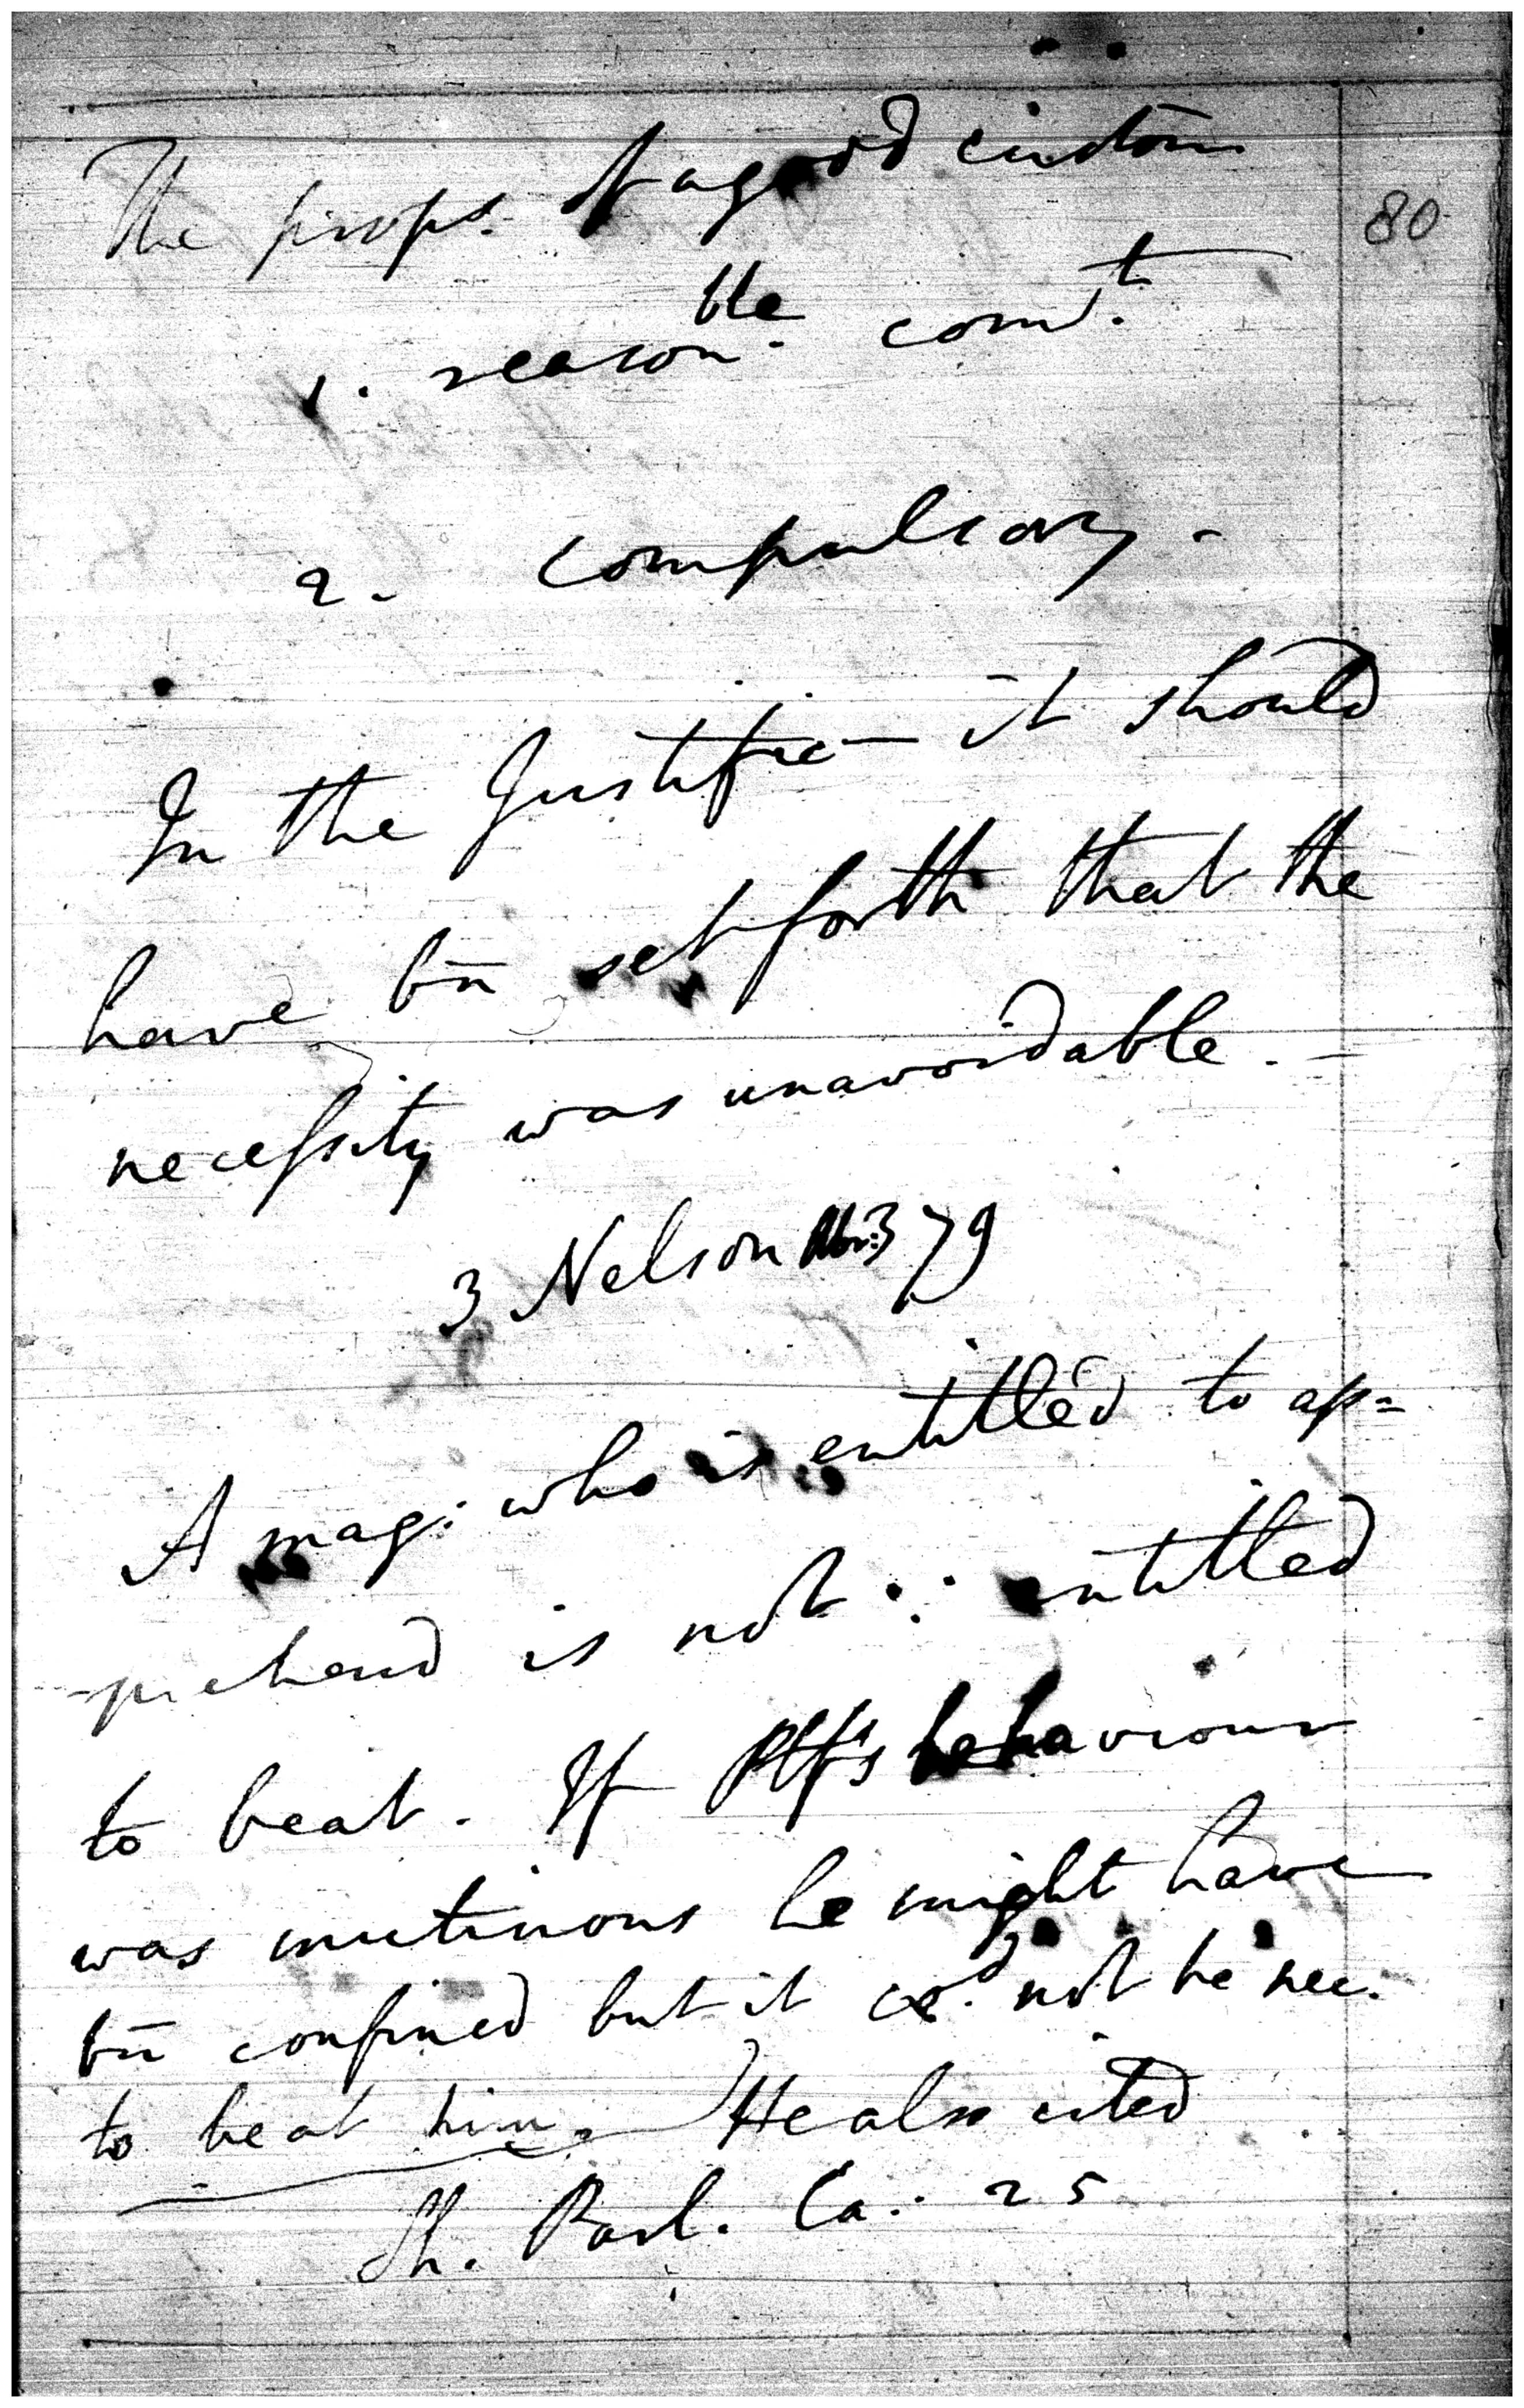 The props. of a good custom
80
1. reason.ble comt.
2. compulsory.
In the Justific- it should
have bn set forth that the
necessity was unavoidable. -
3 Nelson Abr: 379
A mag: who is entitled to ap=
-prehend is not ∵ entitled
to beat. If Plf's behaviour
was mutinous he might have
bn confined but it cod. not be nec.
to beat him. He also cited
Sh. Parl. Ca: 25